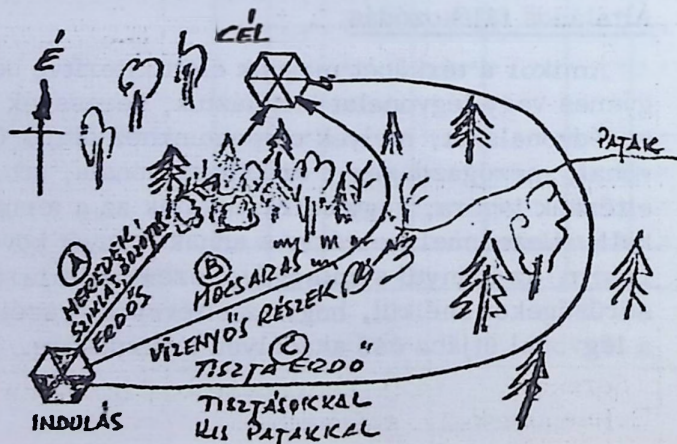 CÉL
É
PATAK
A
MEREDEK,
SZIKLÁS, BOZÓTOS
ERDŐS
B
MOCSARAS
VIZENYŐS RÉSZEK
C
TISZTA ERDŐ
TISZTÁSOKKAL
KIS PATAKKAL
INDULÁS